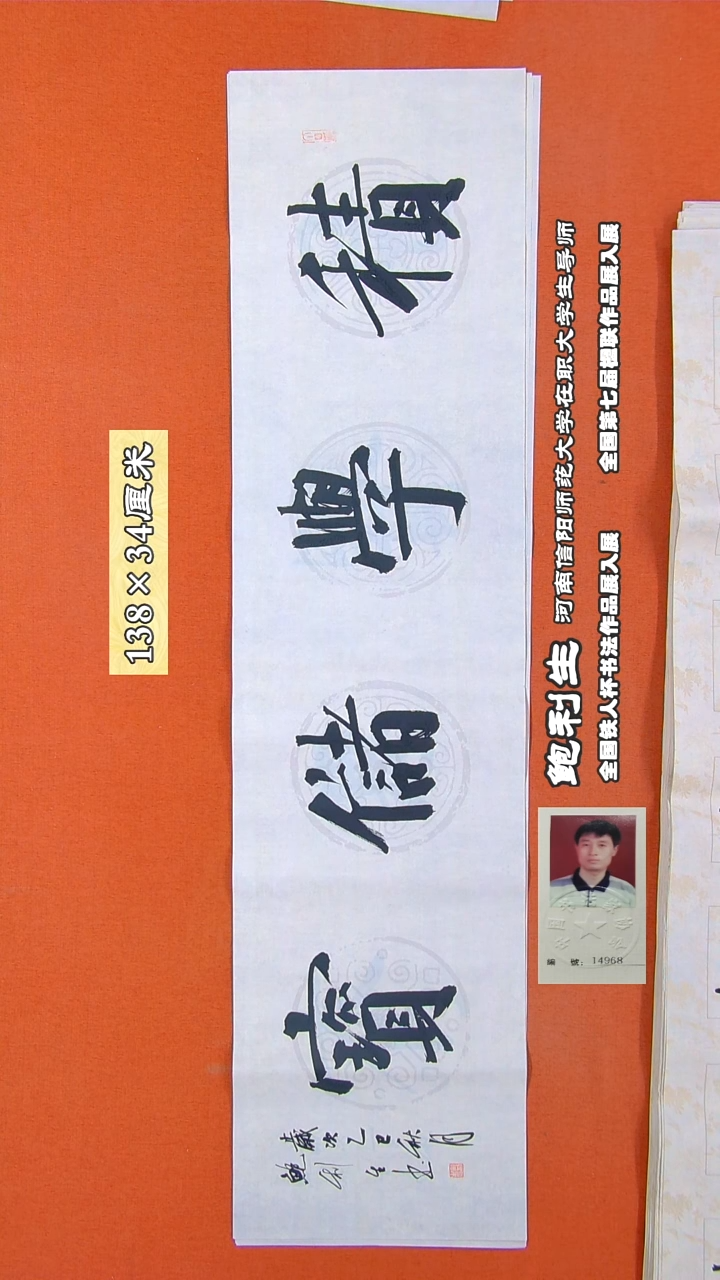 積學儲寶
歲次乙巳秋月
鮑利生书
138×34厘米
鲍利生 河南信阳师范大学在职大学生导师
全国铁人杯书法作品展入展 全国第七届楹联作品展入展
14968